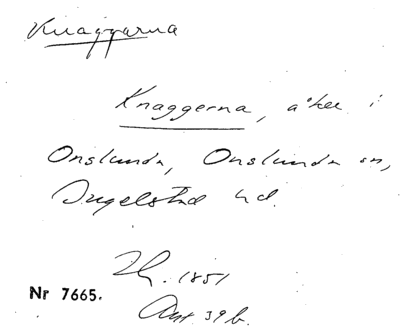 Knaggarna
Knaggerna, åker i
Onslunda, Onslunda sn,
Ingelstad hd.
1851
Nr 7665.
Akt 39 b.